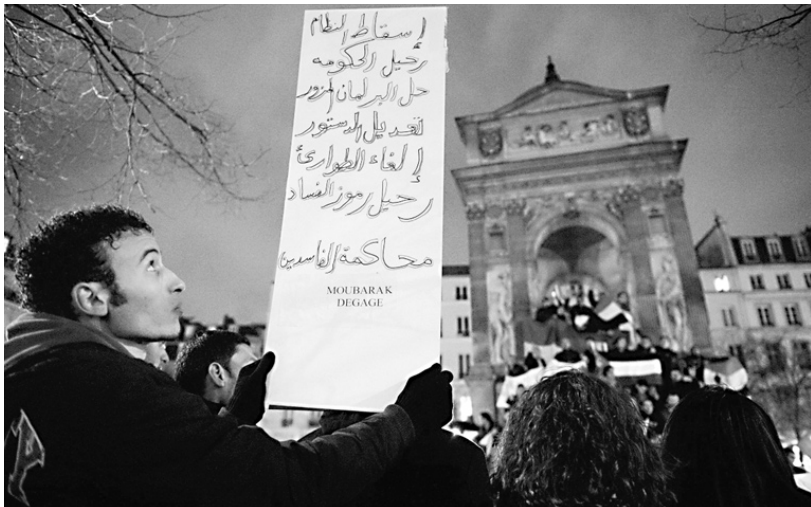 إسقاط النظام
رحيل الحكومه
حل البرلمان المزور
تعديل الدستور
إلغاء الطوارئ
رحيل رموز الفساد
محاكمة الفاسدين
MOUBARAK
DEGAGE